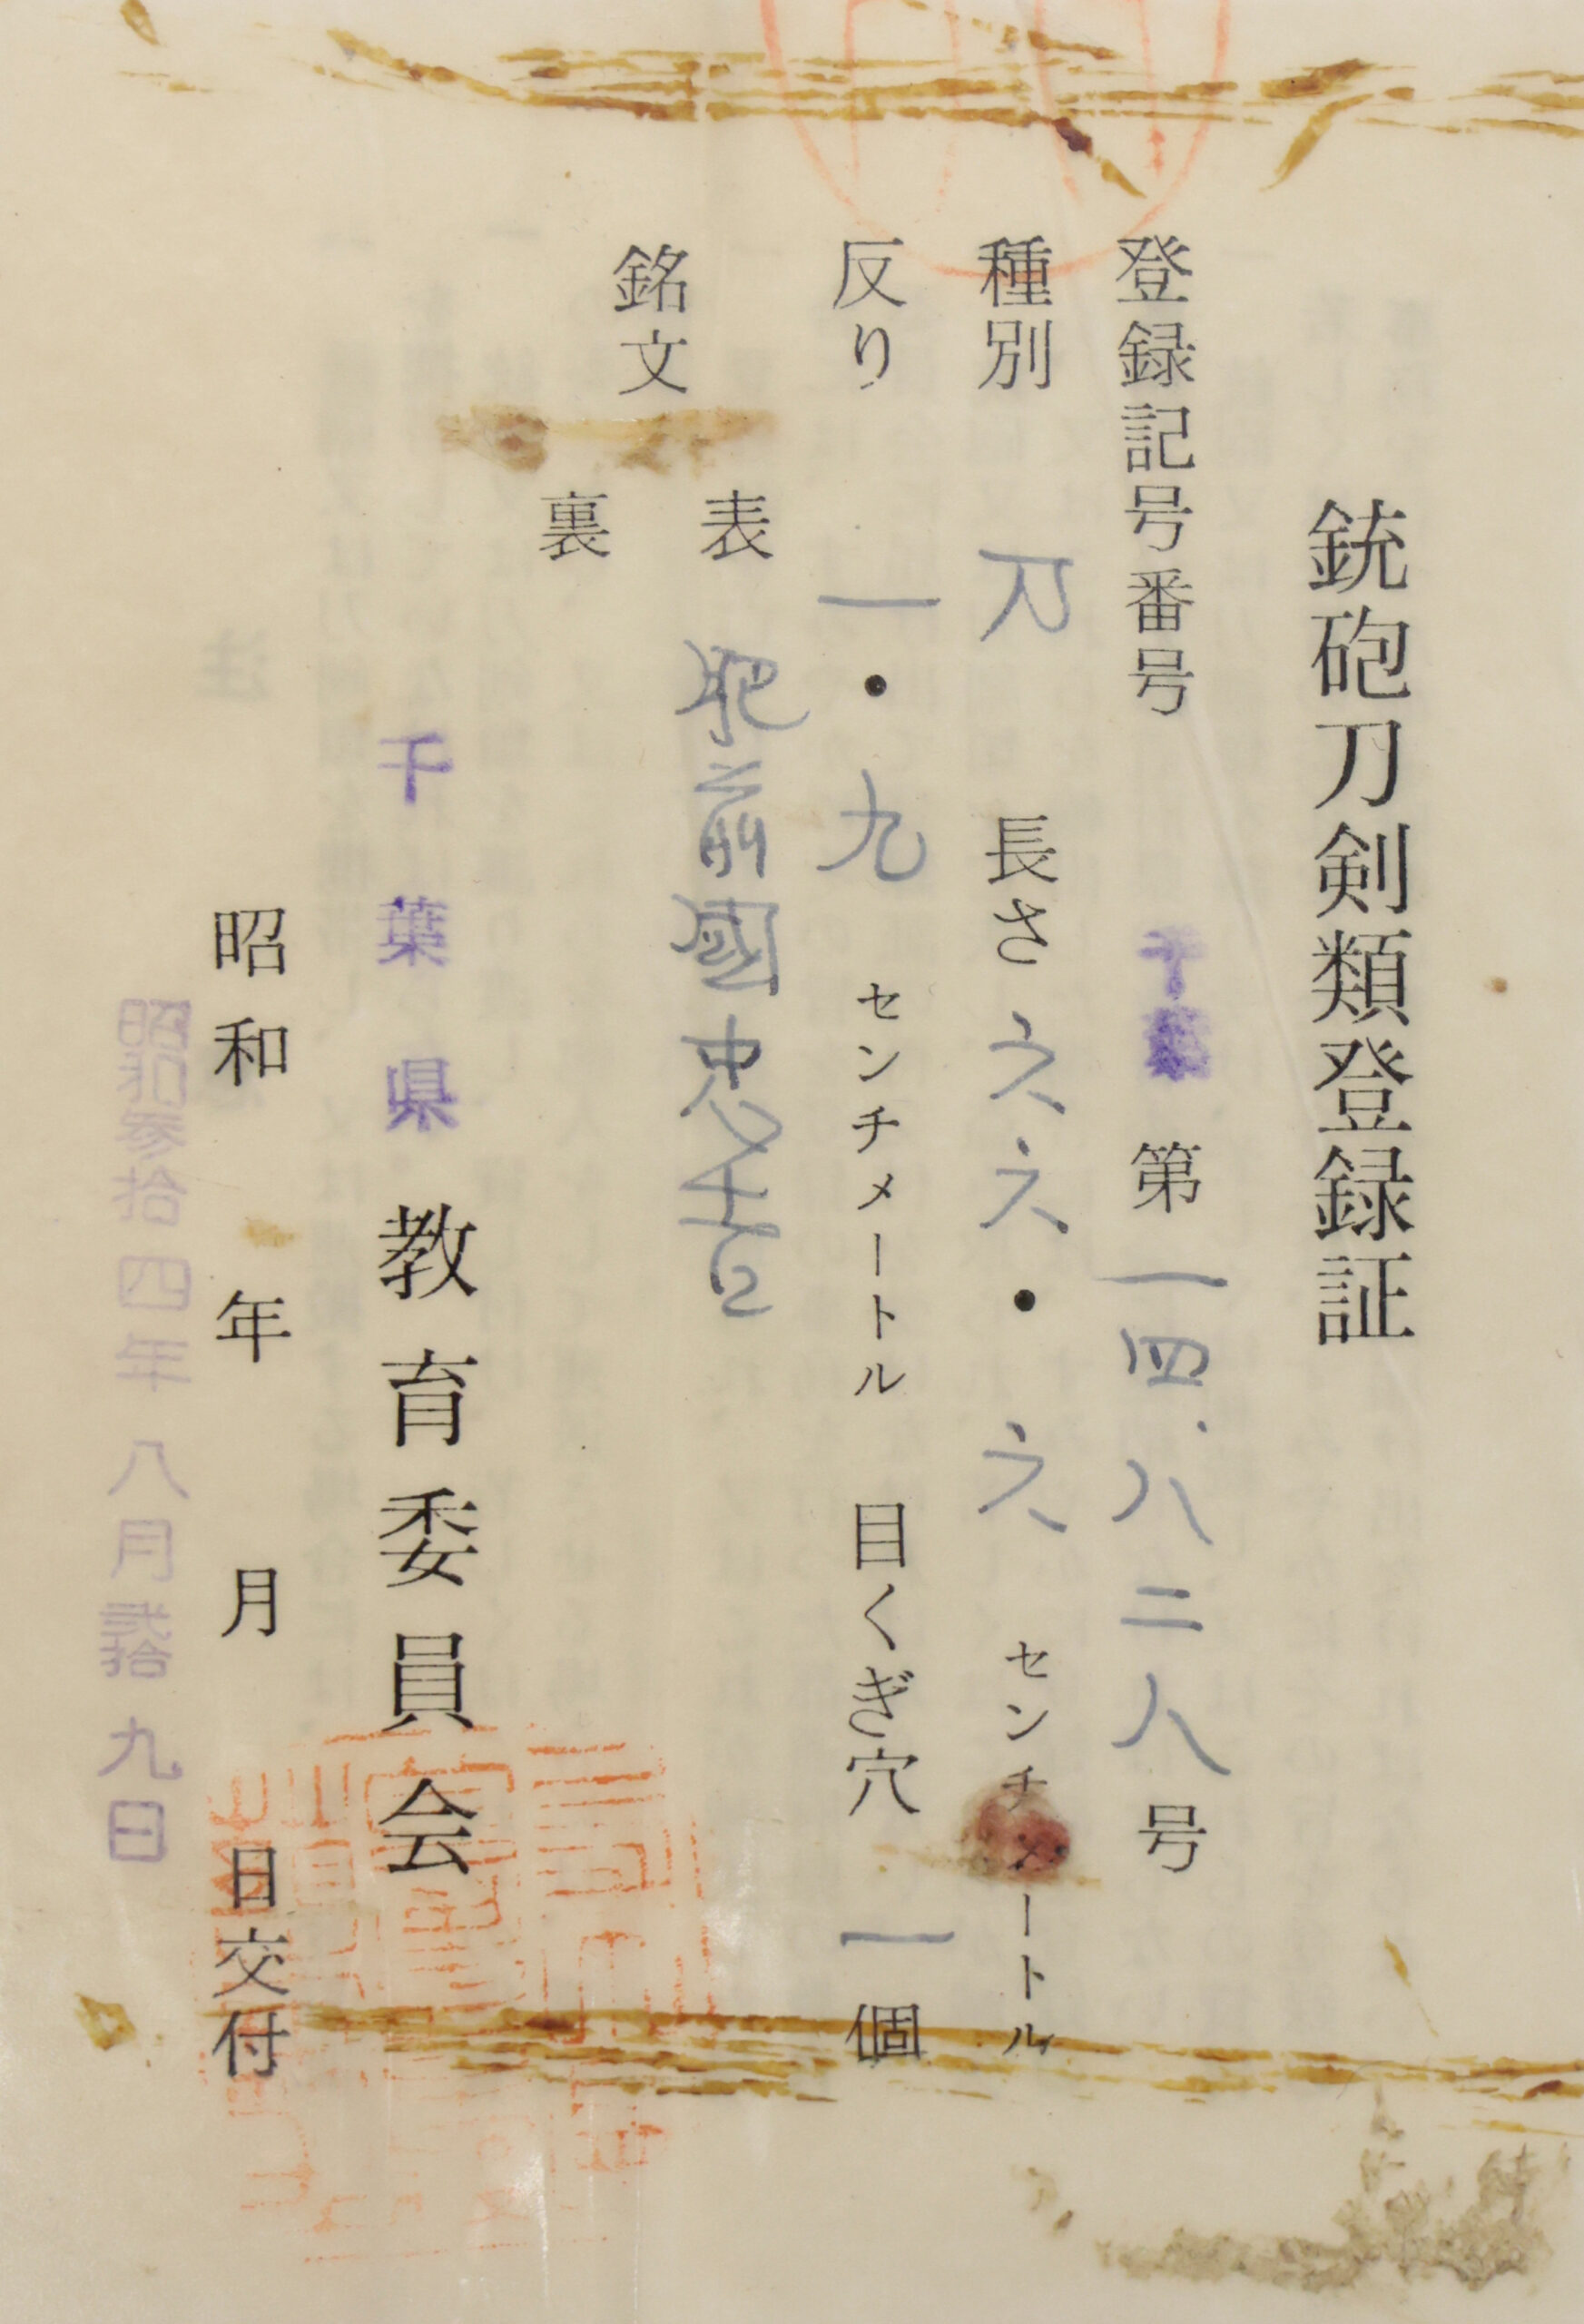 銃砲刀剣類登録証
登録記号番号 千葉 第一四八二八号
種別 刀 長さ 六六・六 センチメートル
反り 一・九 センチメートル 目くぎ穴 一個
銘文
表 肥前國忠吉
裏
千葉県教育委員会
昭和 年 月 日交付
昭和参拾四年八月貳拾九日